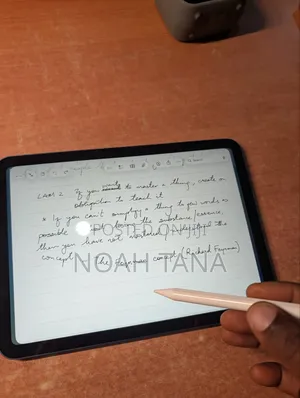 Law 2 If you wants to master a thing, create an
obligation to teach it
* If you can't simplify a thing to few words as
possible without losing the substance/essence,
then you have not mastered/understood the
concept. The Feynman concept (Richard Feynman)
POSTED ON jiji
NOAH TANA